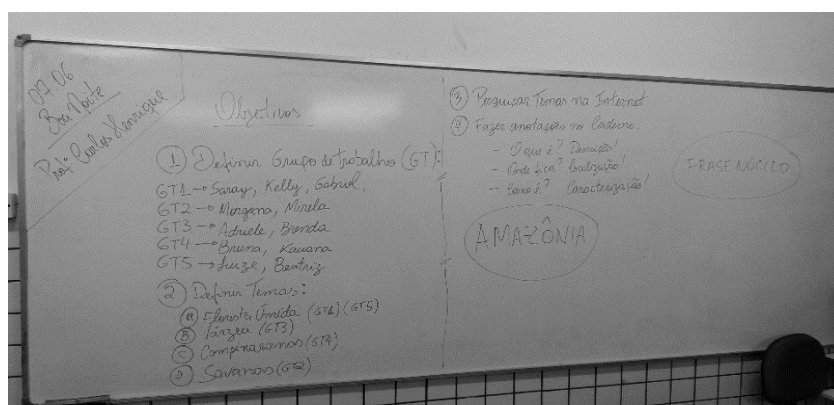 07.06
Boa Noite
Profº Carlos Henrique
Objetivos
① Definir Grupo de trabalho (GT):
GT1 → Saray, Kelly, Gabriel,
GT2 → Morgana, Mirela
GT3 → Adriele, Brenda
GT4 → Bruna, Kauana
GT5 → Luize, Beatriz
② Definir Temas:
Ⓐ Floresta Úmida (GT1) (GT5)
Ⓑ Várzea (GT3)
Ⓒ Campinaramas (GT4)
Ⓓ Savanas (GT2)
③ Pesquisar Temas na Internet
④ Fazer anotações no Caderno:
- O que é? Descrição!
- Onde fica? Localização!
- Como é? Caracterização!
FRASE NÚCLEO
AMAZÔNIA